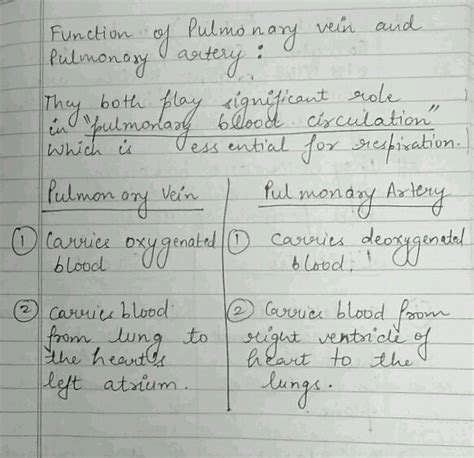 Function of Pulmonary vein and
Pulmonary artery :
They both play significant role
in "pulmonary blood circulation"
which is essential for respiration.
Pulmonary Vein
Pulmonary Artery
① Carries oxygenated blood
① carries deoxygenated blood.
② carries blood
from lung to
the heart's
left atrium.
② Carries blood from
right ventricle of
heart to the
lungs.